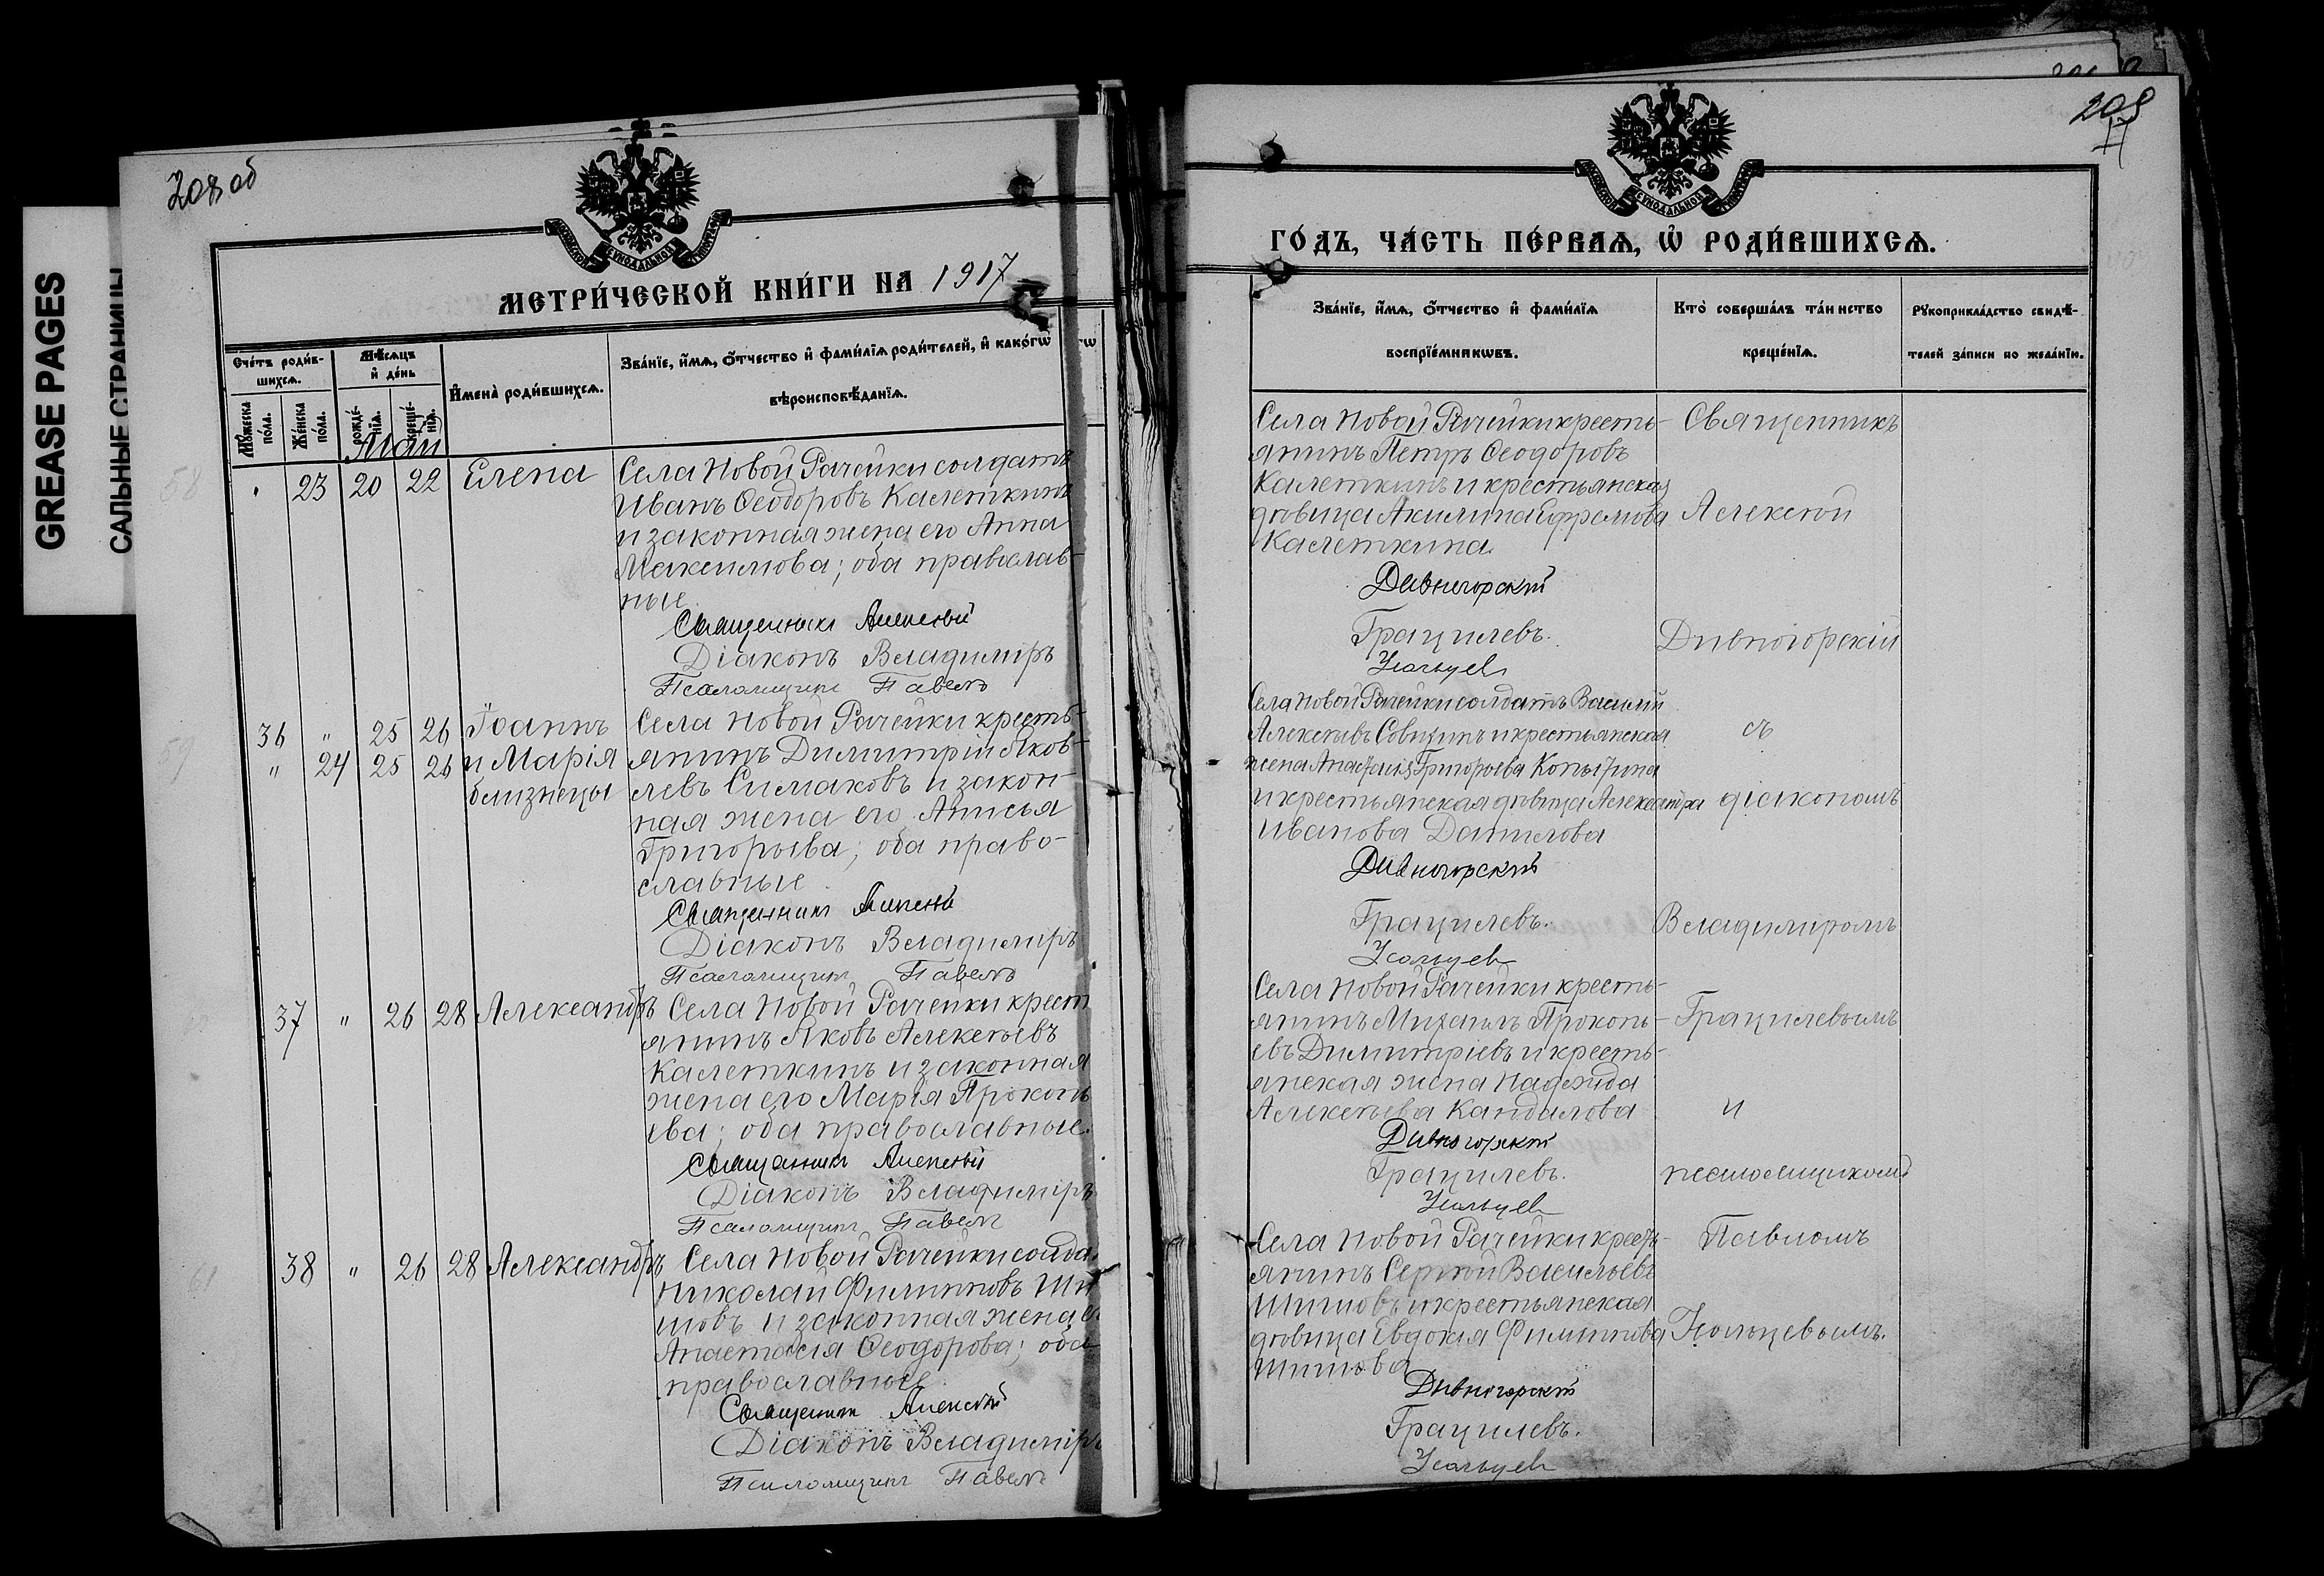 GREASE PAGES
САЛЬНЫЕ СТРАНИЦЫ
208 об
МЕТРИ́ЧЕСКОЙ КНИ́ГИ НА 1917
Сче́тъ роди́в-
шихсѧ.
Мѣ́сѧцъ
и҆ де́нь
И҆мена̀ роди́вшихсѧ.
Зва́нїе, и҆́мѧ, ѻ҆́тчество и҆ фами́лїѧ роди́телей, и҆ како́гѡ
вѣроисповѣ́данїѧ.
Мꙋ́жеска по́ла.
Же́нска по́ла.
рожде́-нїѧ.
креще́-нїѧ.
Май
23 20 22 Елена
Села Новой Рачейки солдатъ
Иванъ Ѳеодоровъ Калеткинъ
и законная жена его Анна
Максимова; оба православ-
ные
Священникъ Алексѣй
Діаконъ Владиміръ
Псаломщикъ Павелъ
36 " 25 26 Іоаннъ
" 24 25 26 и Марія
близнецы
Села Новой Рачейки кресть-
янинъ Димитрій Яков-
левъ Симаковъ и закон-
ная жена его Анисья
Григорьева; оба право-
славные
Священникъ Алексѣй
Діаконъ Владиміръ
Псаломщикъ Павелъ
37 " 26 28 Александръ
Села Новой Рачейки крест
янинъ Яковъ Алексѣевъ
Калеткинъ и законная
жена его Марія Прокопь
ева; оба православные.
Священникъ Алексѣй
Діаконъ Владиміръ
Псаломщикъ Павелъ
38 " 26 28 Александръ
Села Новой Рачейки солда
Николай Филипповъ Ши
шовъ и законная жена е
Анастасія Ѳеодорова; оба
православные
Священникъ Алексѣй
Діаконъ Владиміръ
Псаломщикъ Павелъ
209
17
ГО́ДЪ, ЧА́СТЬ ПЕ́РВАѦ, Ѡ҆ РОДИ́ВШИХСѦ.
Зва́нїе, и҆́мѧ, ѻ҆́тчество и҆ фами́лїѧ
воспрїе́мникѡвъ.
Кто̀ соверша́лъ та́инство
креще́нїѧ.
Рꙋкоприкла́дство свидѣ́-
телей за́писи по жела́нїю.
Села Новой Рачейки кресть-
янинъ Петръ Ѳеодоровъ
Калеткинъ и крестьянская
дѣвица Акилина Ефремова
Калеткина.
Дивногорскій
Грацилевъ.
Усольцев
Села Новой Рачейки солдатъ Василій
Алексѣевъ Совицинъ и крестьянская
жена Анастасія Григорьева Копытина
и крестьянская дѣвица Александра
Иванова Данилова
Дивногорскій
Грацилевъ.
Усольцев
Села Новой Рачейки кресть-
янинъ Михаилъ Прокопь-
евъ Димитріевъ и кресть-
янская жена Надежда
Алексѣева Кандалова
Дивногорскій
Грацилевъ.
Усольцев
Села Новой Рачейки кресть-
янинъ Сергѣй Васильевъ
Шишовъ и крестьянская
дѣвица Евдокія Филиппова
Шишова
Дивногорскій
Грацилевъ.
Усольцев
Священникъ
Алексѣй
Дивногорскій
съ
діакономъ
Владиміромъ
Грацилевымъ
и
псаломщикомъ
Павломъ
Усольцевымъ.